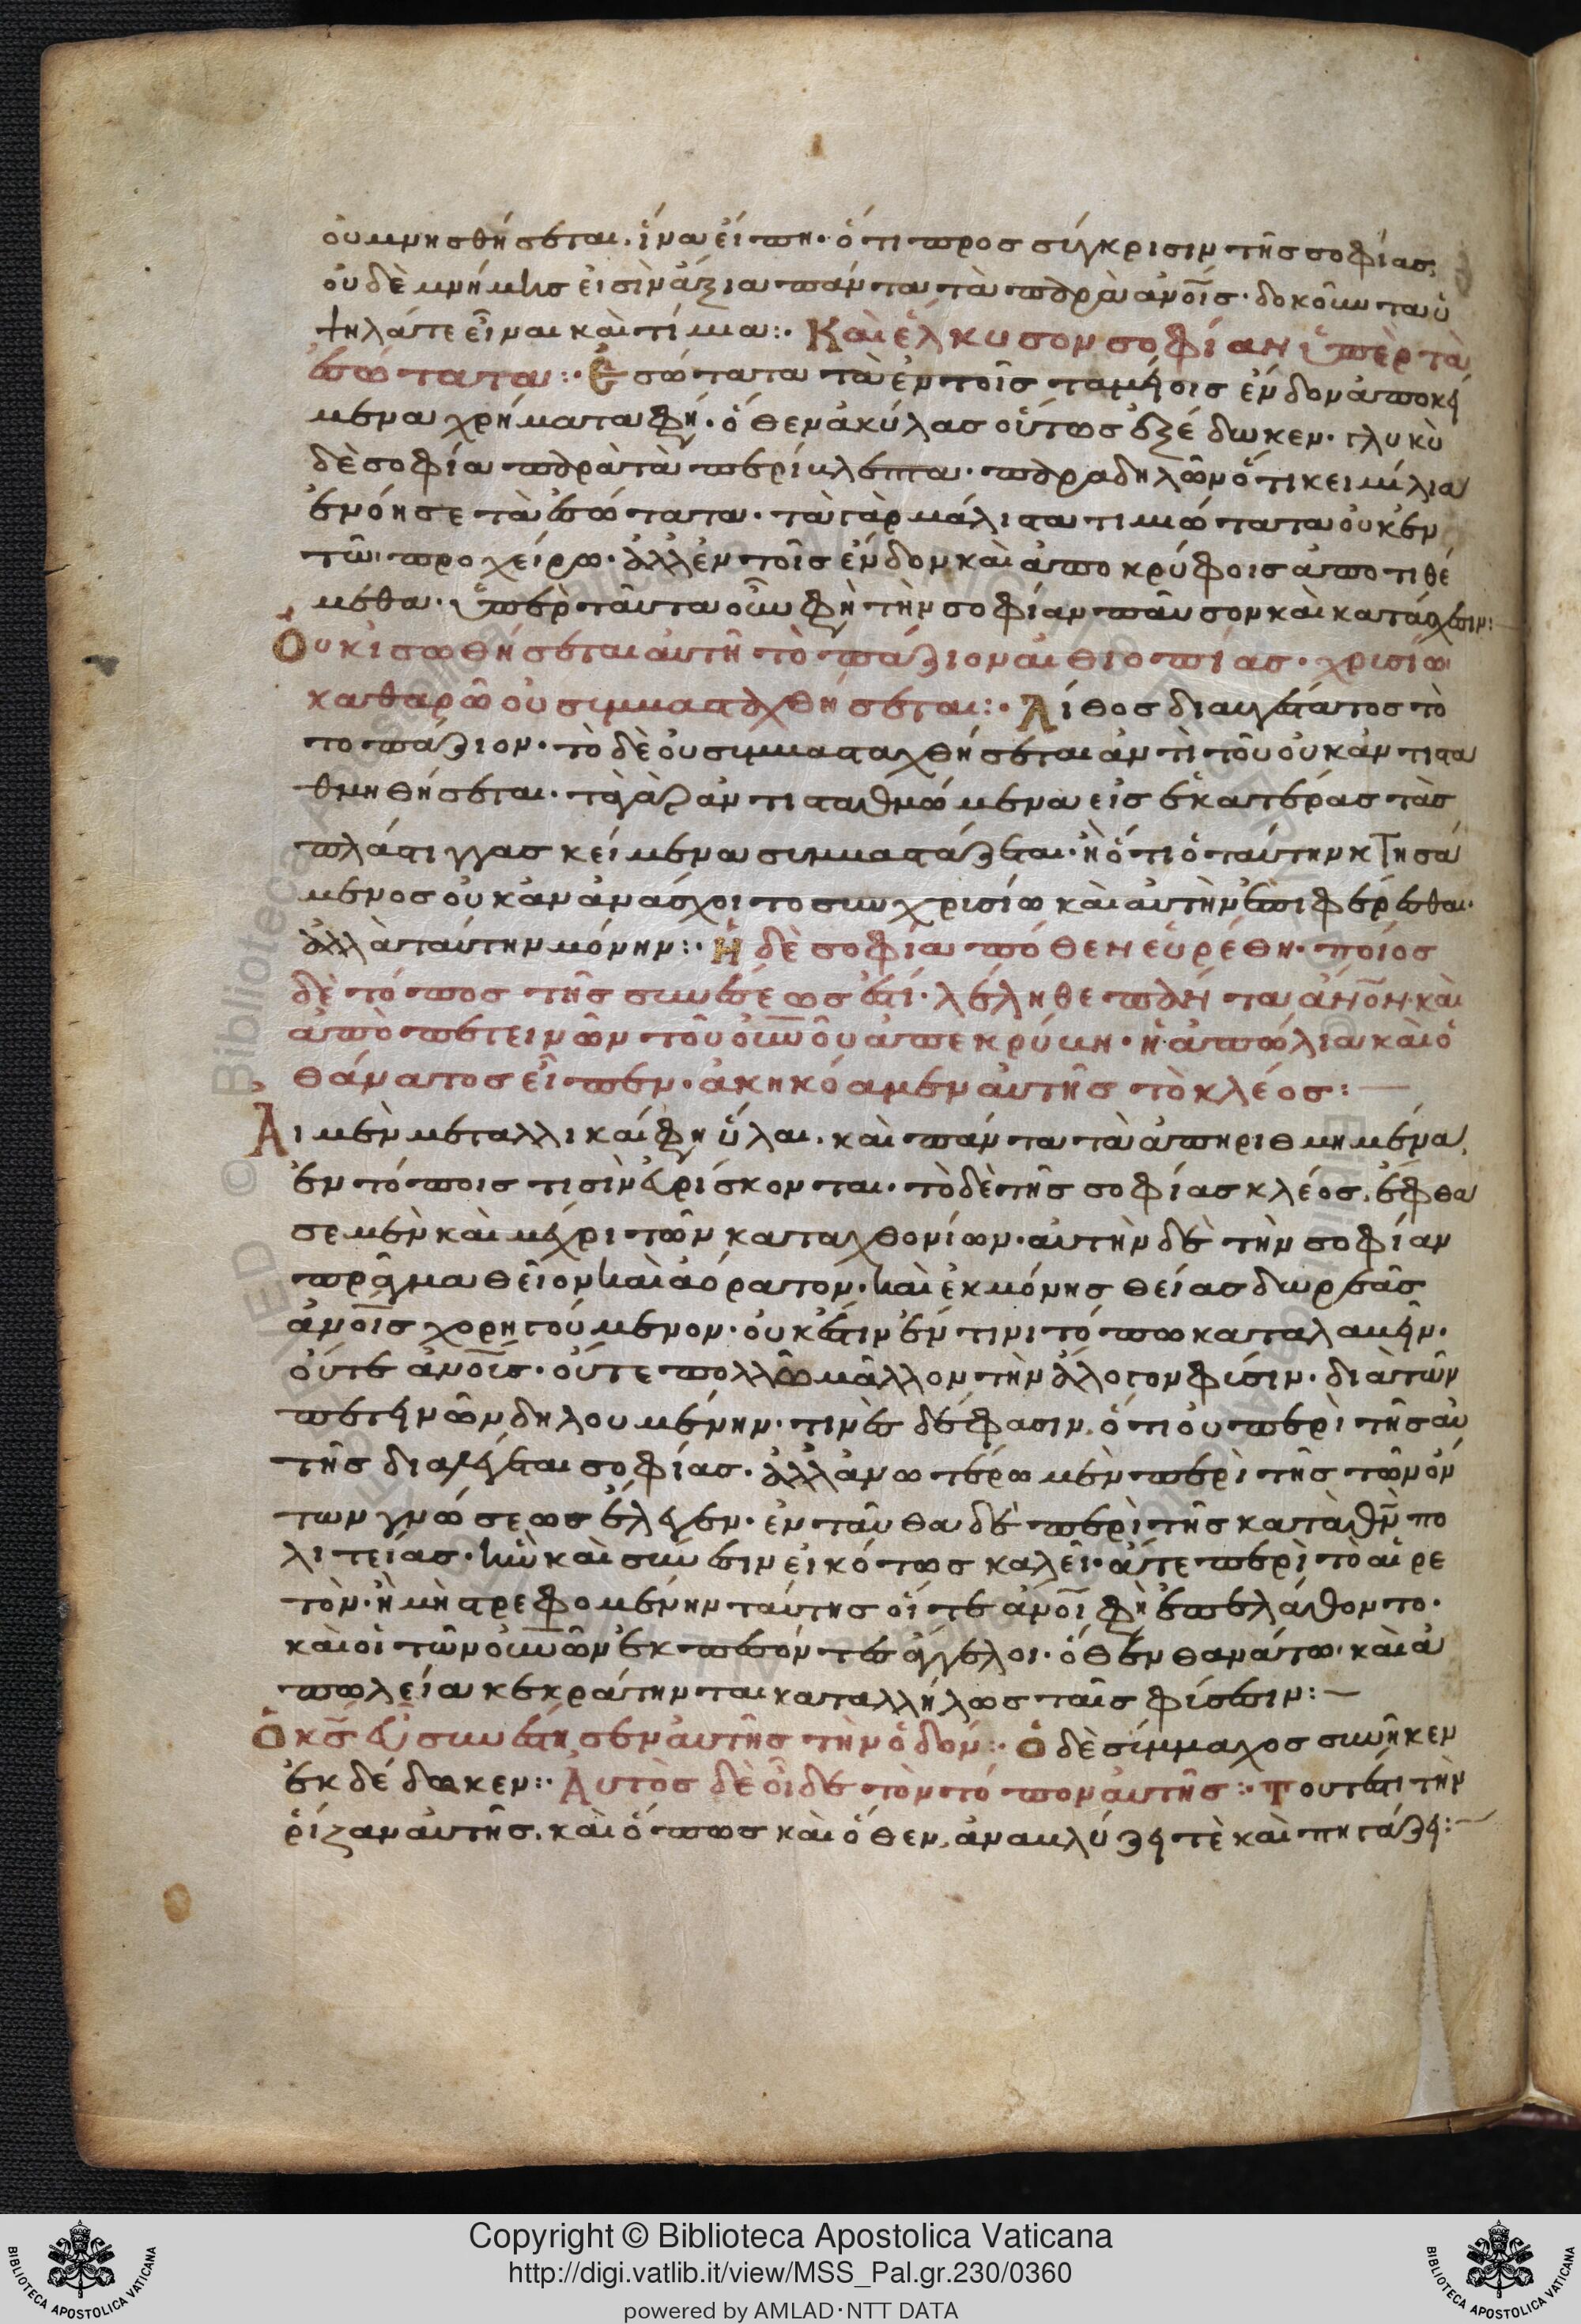 οὐ μνησθήσεται. ἵνα εἴπη· ὅτι προσ σύγκρισιν τῆσ σοφίασ,
οὐδὲ μνήμησ εἰσὶν ἄξια πάντα τὰ παρὰ ἀνοῖσ· δοκοῦντα ὑ
ψηλάτε εἶναι καὶ τίμια:· Καὶ ἕλκυσον σοφίαν ὑπὲρ τὰ
ἐσώτατα:· Ἐσώτατα τὰ ἐν τοῖσ ταμείοισ ἔνδον ἀποκεί
μενα χρήματα φη· ὅθεν ἀκύλασ οὕτωσ ἐξέδωκεν· γλυκὺ
δὲ σοφία παρὰ τὰ περίβλεπτα· παραδηλῶν ὅτι κειμίλια
ἐνόησε τὰ ἐσώτατα· τὰ γὰρ μάλιστα τιμιώτατα οὐκ ἐν
τῶ προχείρω· ἀλλ ἐν τοῖσ ἔνδον καὶ ἀποκρύφοισ ἀποτιθέ
μεθα· ὑπὲρ ταῦτα οὖν φὴ τὴν σοφίαν παῦσον καὶ κατάσχεσιν:
Οὐκ ισωθήσεται αὐτῆ τὸ πάζιον αιθιοπίασ· χρυσίω
καθαρῶ οὐ συμμασταχθήσεται:· Λίθοσ διαυγέστατοσ τὸ
τοπάζιον· τὸ δὲ οὐ συμμασταχθήσεται ἀντὶ τοῦ οὐκ ἀντιστα
θμηθήσεται· τὰ γὰρ ἀντισταθμώμενα εἰσ ἑκατέρασ τὰσ
πλάστιγγασ κείμενα συμμαστάζεται· ἢ ὅτι ὁ ταύτην κτησά
μενοσ οὐκ ἂν ἀνάσχοιτο συν χρυσίω καὶ αὐτὴν ἐπιφέρεσθαι·
ἀλλὰ ταύτην μόνην:· Ἡ δὲ σοφία πόθεν εὑρέθη· ποίοσ
δὲ τόποσ τῆσ συνέσεωσ ἐστί· λέληθε πάντα ἄνον· καὶ
ἀπὸ πετεινῶν τοῦ οὐνοῦ ἀπεκρύβη· ἡ ἀπώλια καὶ ὁ
θάνατοσ εἶπεν· ἀκηκόαμεν αὐτῆσ τὸ κλέοσ: —
Αἱ μὲν μεταλλικαί φη ὗλαι. καὶ πάντα τὰ ἀπηριθμημένα,
ἐν τόποισ τισὶν εὑρίσκονται· τὸ δὲ τῆσ σοφίασ κλέοσ. ἔφθα
σε μὲν καὶ μέχρι τῶν καταχθονίων· αὐτὴν δὲ τὴν σοφίαν
πρᾶγμα θεῖον καὶ ἀόρατον· καὶ ἐκ μόνησ θείασ δωρεᾶσ
ἀνοῖσ χορηγούμενον· οὐκ ἔστιν ἔν τινι τόπω καταλαβεῖν·
οὔτε ἀνοῖσ· οὔτε πολλῶ μᾶλλον τὴν ἄλογον φύσιν· διὰ τῶν
πετεινῶν δηλουμένην· τινὲσ δέ φασιν. ὅτι οὐ περὶ τῆσ αὐ
τῆσ διαλέγεται σοφίασ· ἀλλ ἀνωτέρω μὲν περὶ τῆσ τῶν ὄν
των γνώσεωσ ἔλεγεν· ἐνταῦθα δὲ περὶ τῆσ κατὰ θν πο
λιτείασ· ἣν καὶ σύνεσιν εἰκότωσ καλεῖ· ἅτε περὶ τὸ αἱρε
τὸν· ἢ μὴ στρεφομένην ταύτησ οἵ τε ἄνοι φὴ ἐπελάθοντο·
καὶ οἱ τῶν οὐνῶν ἐκπεσόντεσ ἄγγελοι· ὅθεν θανάτω· καὶ ἀ
πωλεία κεκράτηνται καταλλήλωσ ταῖσ φύσεσιν: —
Ὁ κσ εὖ συνέστησεν αὐτῆσ τὴν ὁδόν:· Ὁ δὲ σύμμαχοσ συνῆκεν
ἐκδέδωκεν:· Αὐτὸσ δὲ οἶδε τὸν τόπον αὐτῆσ:· Τουτέστι τὴν
ῥίζαν αὐτῆσ. καὶ ὅπωσ καὶ ὅθεν, ἀναβλύζει τὲ καὶ πηγάζει: —
Copyright © Biblioteca Apostolica Vaticana
http://digi.vatlib.it/view/MSS_Pal.gr.230/0360
powered by AMLAD·NTT DATA
BIBLIOTECA APOSTOLICA VATICANA
BIBLIOTECA APOSTOLICA VATICANA